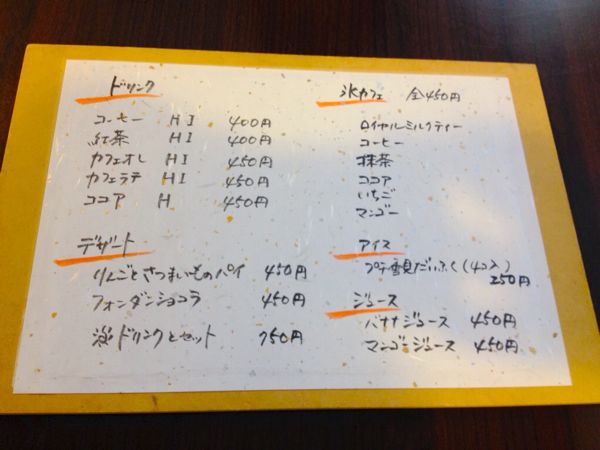 ドリンク
コーヒー H I 400円
紅茶 H I 400円
カフェオレ H I 450円
カフェラテ H I 450円
ココア H 450円
デザート
りんごとさつまいものパイ 450円
フォンダンショコラ 450円
ドリンクとセット 750円
氷カフェ 全450円
ロイヤルミルクティー
コーヒー
抹茶
ココア
いちご
マンゴー
アイス
プチ雪見だいふく(4コ入)
250円
ジュース
バナナジュース 450円
マンゴージュース 450円